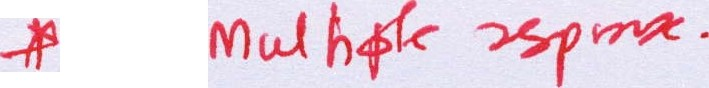 * Multiple response.